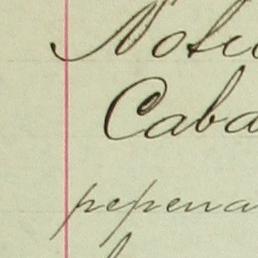 Notic
Caba
pepena